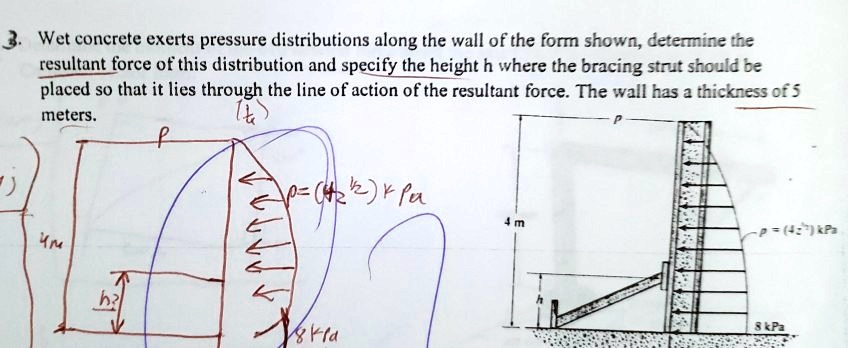 3. Wet concrete exerts pressure distributions along the wall of the form shown, determine the
resultant force of this distribution and specify the height h where the bracing strut should be
placed so that it lies through the line of action of the resultant force. The wall has a thickness of 5
meters.
P
p=(4z^½) k Pa
4m
h?
8 kPa
P
4 m
p = (4z^½) kPa
h
8 kPa